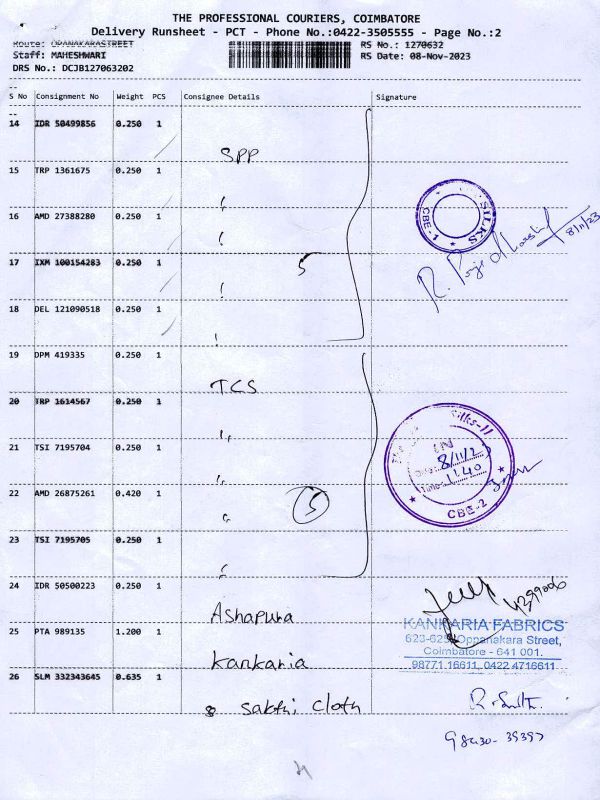 THE PROFESSIONAL COURIERS, COIMBATORE
Delivery Runsheet - PCT - Phone No.:0422-3505555 - Page No.:2
Route: OPANAKARASTREET RS No.: 1270632
Staff: MAHESHWARI RS Date: 08-Nov-2023
DRS No.: DCJB127063202
S No Consignment No Weight PCS Consignee Details Signature
14 IDR 50499856 0.250 1
SPP
15 TRP 1361675 0.250 1
16 AMD 27388280 0.250 1
SILKS
CBE-1
8/11/23
17 IXM 100154283 0.250 1 5
18 DEL 121090518 0.250 1
19 DPM 419335 0.250 1
TCS
20 TRP 1614567 0.250 1
Silks-II
21 TSI 7195704 0.250 1
IN
8/11/2
11.40
22 AMD 26875261 0.420 1
5
CBE-2
23 TSI 7195705 0.250 1
24 IDR 50500223 0.250 1
Ashapura
25 PTA 989135 1.200 1
KANKARIA FABRICS
623-625, Oppanakara Street,
Coimbatore - 641 001.
98771 16611, 0422 4716611
Kankaria
26 SLM 332343645 0.635 1
Sakthi Cloth